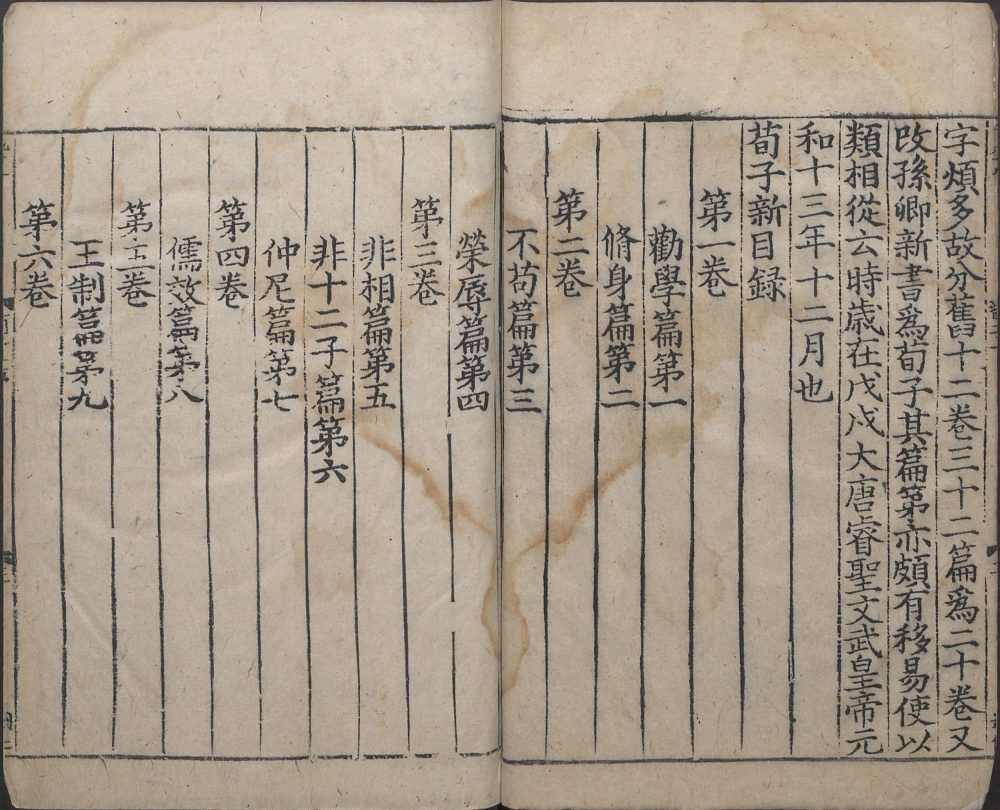 字煩多故分舊十二卷三十二篇爲二十卷又
改孫卿新書爲荀子其篇第亦頗有移易使以
類相從云時歳在戊戌大唐睿聖文武皇帝元
和十三年十二月也
荀子新目録
第一卷
勸學篇第一
脩身篇第二
第二卷
不苟篇第三
榮辱篇第四
第三卷
非相篇第五
非十二子篇第六
仲尼篇第七
第四卷
儒效篇第八
第五卷
王制篇第九
第六卷